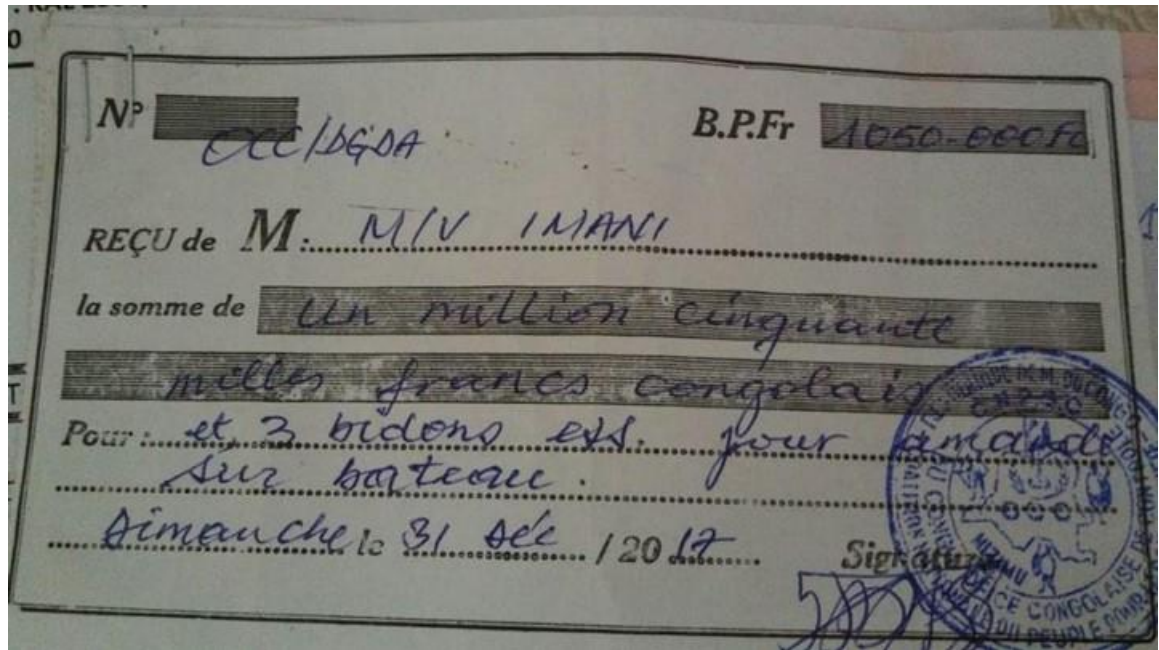 Nº
OCC/DGDA
B.P.Fr 1050-000fc
REÇU de M: M/V IMANI
la somme de Un million cinquante
milles francs congolais
Pour: et 3 bidons ess. pour amande
sur bateau.
Dimanche le 31 Déc / 2017
Signature
CNPSC
MIZIMU